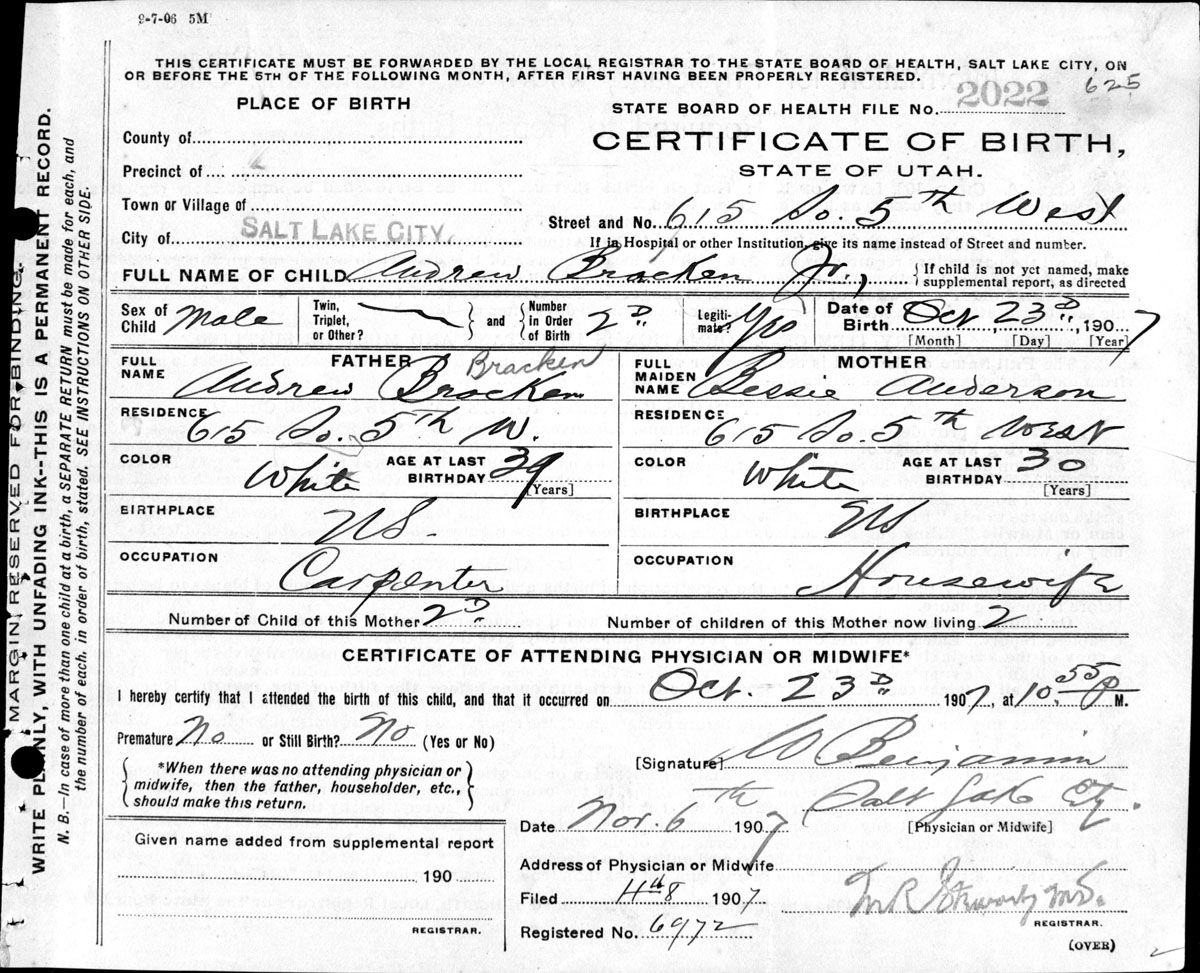 9-7-06 5M
THIS CERTIFICATE MUST BE FORWARDED BY THE LOCAL REGISTRAR TO THE STATE BOARD OF HEALTH, SALT LAKE CITY, ON
OR BEFORE THE 5TH OF THE FOLLOWING MONTH, AFTER FIRST HAVING BEEN PROPERLY REGISTERED.
625
PLACE OF BIRTH
STATE BOARD OF HEALTH FILE No. 2022
County of
CERTIFICATE OF BIRTH,
Precinct of
STATE OF UTAH.
Town or Village of
Street and No. 615 So. 5th West
City of SALT LAKE CITY.
If in Hospital or other Institution, give its name instead of Street and number.
FULL NAME OF CHILD Andrew Bracken Jr.,
If child is not yet named, make
supplemental report, as directed
Sex of
Child Male
Twin,
Triplet,
or Other?
and
Number
in Order
of Birth 2D
Legiti-
mate? Yes
Date of
Birth Oct 23D, 1907
[Month] [Day] [Year]
FATHER
FULL
NAME Andrew Bracken
Bracken
MOTHER
FULL
MAIDEN
NAME Bessie Anderson
RESIDENCE
615 So. 5th W.
RESIDENCE
615 So. 5th West
COLOR White
AGE AT LAST
BIRTHDAY 39
[Years]
COLOR White
AGE AT LAST
BIRTHDAY 30
[Years]
BIRTHPLACE
US.
BIRTHPLACE
US
OCCUPATION
Carpenter
OCCUPATION
Housewife
Number of Child of this Mother 2D
Number of children of this Mother now living 2
CERTIFICATE OF ATTENDING PHYSICIAN OR MIDWIFE*
I hereby certify that I attended the birth of this child, and that it occurred on Oct. 23D 1907, at 10.55 P M.
Premature No or Still Birth? No (Yes or No)
[Signature] W Benjamin
*When there was no attending physician or
midwife, then the father, householder, etc.,
should make this return.
Salt Lake City.
Date Nov. 6th 1907
[Physician or Midwife]
Given name added from supplemental report
190
REGISTRAR.
Address of Physician or Midwife
Filed 1907
Registered No. 6972
REGISTRAR.
(OVER)
MARGIN RESERVED FOR BINDING.
WRITE PLAINLY, WITH UNFADING INK--THIS IS A PERMANENT RECORD.
N. B.—In case of more than one child at a birth, a SEPARATE RETURN must be made for each, and
the number of each, in order of birth, stated. SEE INSTRUCTIONS ON OTHER SIDE.